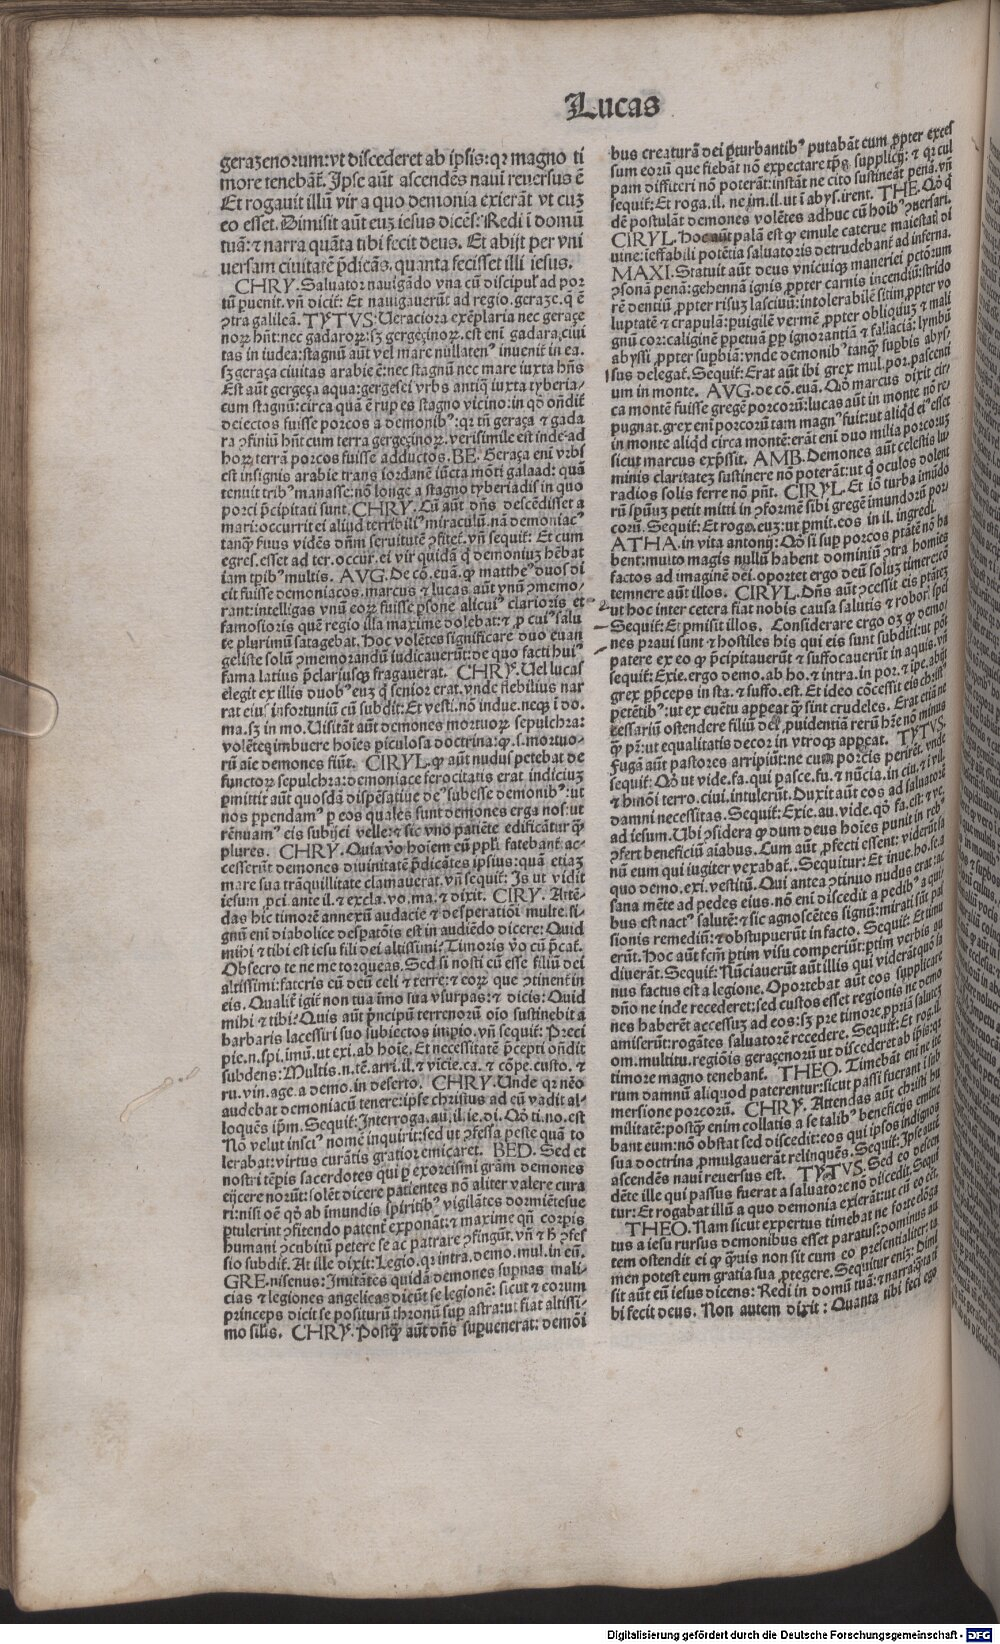 Lucas
gerazenorum: vt discederet ab ipsis: qr magno ti
more tenebãt. Ipse aũt ascendẽs nauĩ reuersus ẽ
Et rogauit illũ vir a quo demonia exierãt vt cuz
eo esset. Dimisit aũt euz iesus dicẽs: Redi ĩ domũ
tuã: ⁊ narra quãta tibi fecit deus. Et abijt per vni
uersam ciuitatẽ p̃dicãs, quanta fecisset illi iesus.
CHRY. Saluator nauigãdo vna cũ discipul' ad por
tũ puenit. vñ dicit̃: Et nauigauerũt ad regio. geraze. q̃ ẽ
ꝯtra galileã. TYTVS. Ueraciora exẽplaria nec geraçe
noꝝ hñt: nec gadaroꝝ: sꝫ gergeçinoꝝ. est eni gadara ciui
tas in iudea: stagnũ aũt vel mare nullatenꝰ inuenit̃ in ea.
sꝫ geraça ciuitas arabie ẽ: nec stagnũ nec mare iuxta hñs
Est aũt gergeça aqua: gergesei vrbs antiq̃ iuxta tyberia-
cum stagnũ: circa quã ẽ rupes stagno vicino: in qõ oñdit̃
deiectos fuisse porcos a demonibꝰ: qr tñ geraça ⁊ gada
ra ꝯfiniũ hñt cum terra gergeçinoꝝ. verisimile est inde ad
hoꝝ terrã porcos fuisse adductos. BE. Geraça eni vrbs
est insignis arabie trans iordanẽ iũcta mõti galaad: quã
tenuit tribꝰ manasse: nõ longe a stagno tyberiadis in quo
porci p̃cipitati sunt. CHRY. Cũ aũt dñs descẽdisset a
mari: occurrit ei aliud terribiliꝰ miraculũ. nã demoniacꝰ
tanq̃ fuus vidẽs dñm seruitutẽ ꝯfitet̃. vñ sequit̃: Et cum
egres. esset ad ter. occur. ei vir quidã q̃ demoniuz hẽbat
iam tp̃ibꝰ multis. AVG. De cõ. euã. ꝙ mattheꝰ duos di
cit fuisse demoniacos. marcus ⁊ lucas aũt vnũ ꝯmemo-
rant: intelligas vnũ eoꝝ fuisse p̃sone alicuiꝰ clarioris et
famosioris quẽ regio illa maxime dolebat: ⁊ ꝓ cuiꝰ salu
te plurimũ satagebat. Hoc volẽtes significare duo euan
geliste solũ ꝯmemorandũ iudicauerũt: de quo facti huiꝰ
fama latius p̃clariusqꝫ fragauerat. CHRY. Uel lucas
elegit ex illis duobꝰ euz q̃ senior erat. vnde flebilius nar
rat eius infortuniũ cũ subdit̃: Et vesti. nõ indue. neqꝫ ĩ do.
ma. sꝫ in mo. Uisitãt aũt demones mortuoꝝ sepulchra:
volẽtes imbuere hoĩes p̃iculosa doctrina: ꝙ .s. mortuo-
rũ aĩe demones fiũt. CIRYL. ꝙ aũt nudus petebat de
functoꝝ sepulchra: demoniace ferocitatis erat indiciuz
p̃mittit aũt quosdã dispẽsatiue deꝰ subesse demonibꝰ: ut
nos ꝑpendamꝰ ꝑ eos quales sunt demones erga nos: ut
rẽnuamꝰ eis subijci velle: ⁊ sic vno patiẽte edificãtur q̃
plures. CHRY. Quia ṽo hoĩem eũ ppl'i fatebant̃: ac-
cesserũt demones diuinitatẽ p̃dicãtes ipsius: quã etiaz
mare sua trãquillitate clamauerat. vñ sequit̃: Is ut vidit
iesum ꝓci. ante il. ⁊ excla. vo. ma. ⁊ dixit. CIRY. Attẽ-
das hic timorẽ annexũ audacie ⁊ desperatiõi multe. si-
gnũ eni diabolice desp̃atõis est in audiẽdo dicere: Quid
mihi ⁊ tibi est iesu fili dei altissimi? Timoris ṽo cũ p̃cat̃.
Obsecro te ne me torqueas. Sed si nosti eũ esse filiũ dei
altissimi: fateris eũ deũ celi ⁊ terre: ⁊ eoꝝ que ꝯtinent̃ in
eis. Qualit̃ igit̃ non tua ĩmo sua vsurpas: ⁊ dicis: Quid
mihi ⁊ tibi? Quis aũt p̃ncipũ terrenorũ oĩo sustinebit a
barbaris lacessiri suo subiectos imperio. vñ sequit̃: Preci
pie. n. spi. imũ. ut exi. ab hoĩe. Et necessitatẽ p̃cepti oñdit
subdens: Multis. n. tẽ. arri. il. ⁊ vicie. ca. ⁊ cõpe. custo. ⁊
ru. vin. age. a demo. in deserto. CHRY. Unde qr nẽo
audebat demoniacũ tenere: ipse christus ad eũ vadit al-
loquẽs ip̃m. Sequit̃: Interroga. aũ. il. ie. di. Qõ ti. no. est
Nõ velut insciꝰ nomẽ inquirit: sed ut ꝯfessa peste quã to
lerabat: virtus curãtis gratior emicaret. BED. Sed et
nostri tẽpis sacerdotes qui ꝑ exorcismi grãm demones
eijcere norũt: solẽt dicere patientes nõ aliter valere cura
ri: nisi oẽ qõ ab ĩmundis spiritibꝰ vigilãtes dormiẽtesue
ꝑtulerint ꝯfitendo patent̃ exponãt: ⁊ maxime qñ corpis
humani ꝯcubitũ petere se ac patrare ꝯfingũt. vñ ⁊ h̃ ꝯfes
sio subdit̃. At ille dixit: Legio. qr intra. demo. mul. in eũ.
GRE. nisenus: Imitãtes quidã demones sup̃nas mali-
cias ⁊ legiones angelicas dicũt se legionẽ: sicut ⁊ eorum
princeps dicit se positurũ thronũ sup̃ astra: ut fiat altissi-
mo silis. CHRY. Postq̃ aũt dñs sup̃uenerat: demõi
bus creaturã dei p̃turbantibꝰ putabãt eum ꝓpter exces
sum eorũ que fiebãt nõ expectare tp̃s supplicij: ⁊ qr cul
pam diffiteri nõ poterãt: instãt ne cito sustineãt penã. vñ
sequit̃: Et roga. il. ne im. il. ut ĩ abys. irent. THE. Qõ q̃
dẽ postulãt demones volẽtes adhuc cũ hoĩbꝰ ꝯuersari.
CIRYL. Hoc aũt palã est ꝙ emule caterue maiestati di
uine: ĩeffabili potẽtia saluatoris detrudebant̃ ad inferna.
MAXI. Statuit aũt deus vnicuiqꝫ maneriei pctõrum
ꝯsonã penã: gehennã ignis ꝓpter carnis incendiũ: strido
rẽ dentiũ ꝓpter risuz lasciuũ: intolerabilẽ sitim ꝓpter vo
luptatẽ ⁊ crapulã: puigilẽ vermẽ ꝓpter obliquuz ⁊ mali
gnũ cor: caliginẽ ꝑpetuã pp ignorantiã ⁊ fallaciã: lymbũ
abyssi ꝓpter supbiã: vnde demonibꝰ tanq̃ supbis abys-
sus delegat̃. Sequit̃: Erat aũt ibi grex mul. por. pascenti
um in monte. AVG. de cõ. euã. Qõ marcus dixit cir-
ca montẽ fuisse gregẽ porcorũ: lucas aũt in monte nõ re-
pugnat. grex eni porcorũ tam magnꝰ fuit: ut aliqd eiꝰ esset
in monte aliqd circa montẽ: erãt eni duo milia porcoruz
sicut marcus exp̃ssit. AMB. Demones aũt celestis lu-
minis claritatez sustinere nõ poterãt: ut q̃ oculos dolent
radios solis ferre nõ pñt. CIRYL. Et iõ turba ĩmũdo
rũ spũuz petit mitti in ꝯformẽ sibi gregẽ immundorũ por-
corũ. Sequit̃: Et roga. euz: ut p̃mit. eos in il. ingredi.
ATHA. in vita antonij: Qõ si sup̃ porcos ptãtẽ nõ ha
bent: multo magis nullũ habent dominiũ ꝯtra homies
factos ad imaginẽ dei. oportet ergo deũ soluz timere: cõ
temnere aũt illos. CIRYL. Dñs aũt ꝯcessit eis ptãtez
ut hoc inter cetera fiat nobis causa salutis ⁊ robor. spei
Sequit̃: Et p̃misit illos. Considerare ergo oꝫ ꝙ demo-
nes praui sunt ⁊ hostiles his qui eis sunt subditi: ut põt
patere ex eo ꝙ p̃cipitauerũt ⁊ suffocauerũt in aquis. vñ
sequit̃: Exie. ergo demo. ab ho. ⁊ intra. in por. ⁊ ipe. abijt
grex p̃ceps in sta. ⁊ suffo. est. Et ideo cõcessit eis christꝰ
petẽtibꝰ: ut ex euẽtu appeat q̃ sint crudeles. Erat etiã ne
cessariũ ostendere filiũ dei ꝓuidentiã rerũ hr̃e nõ minus
q̃ pr̃: ut equalitatis decor in vtroqꝫ appeat. TYTVS.
Fugã aũt pastores arripiũt: ne cum porcis perirẽt. vnde
sequit̃: Qõ ut vide. fa. qui pasce. fu. ⁊ nũcia. in ciu. ⁊ ĩ vil.
⁊ hmõi terro. ciui. intulerũt. Duxit aũt eos ad saluatorẽ
damni necessitas. Sequit̃: Exie. au. vide. qõ fa. est: ⁊ ve.
ad iesum. Ubi ꝯsidera ꝙ dum deus hoĩes punit in rebꝰ
ꝯfert beneficiũ aĩabus. Cum aũt ꝓfecti essent: viderũt sa
nũ eum qui iugiter vexabat̃. Sequitur: Et inue. ho. se. a
quo demo. exi. vestitũ. Qui antea ꝯtinuo nudus erat: ac
sana mẽte ad pedes eius. nõ eni discedit a pedibꝰ a qui-
bus est nactꝰ salutẽ: ⁊ sic agnoscẽtes signũ: mirati sũt pas
sionis remediũ: ⁊ obstupuerũt in facto. Sequit̃: Et timu
erũt. Hoc aũt fcm ꝑtim visu comperiũt: ꝑtim verbis au
diuerãt. Sequit̃: Nũciauerũt aũt illis qui viderãt quõ sa
nus factus est a legione. Oportebat aũt eos supplicare
dño ne inde recederet: sed custos esset regionis ne demo
nes haberẽt accessuz ad eos: sꝫ pre timore ꝓpriã salutẽ
amiserũt: rogãtes saluatorẽ recedere. Sequit̃: Et rog. il.
om. multitu. regiõis geraçenorũ ut discederet ab ip̃is: qr
timore magno tenebant̃. THEO. Timebãt eni ne ite
rum damnũ aliquod paterentur: sicut passi fuerant ĩ sub
mersione porcorũ. CHRY. Attendas aũt christi hu
militatẽ: postq̃ enim collatis a se talibꝰ beneficijs emitte
bant eum: nõ obstat sed discedit: eos qui ipsos indignos
sua doctrina ꝓmulgauerãt relinquẽs. Sequit̃: Ipse autẽ
ascendẽs nauĩ reuersus est. TYTVS. Sed eo descen
dẽte ille qui passus fuerat a saluatore nõ discedit. Sequi
tur: Et rogabat illũ a quo demonia exierãt: ut cũ eo eẽt.
THEO. Nam sicut expertus timebat ne forte elõga
tus a iesu rursus demonibus esset paratus: dominus au
tem ostendit ei ꝙ q̃uis non sit cum eo presentialiter: ta
men potest eum gratia sua ꝓtegere. Sequitur eniz: Dimi
sit aũt eũ iesus dicens: Redi in domũ tuã: ⁊ narra: q̃ta ti
bi fecit deus. Non autem dixit: Quanta tibi feci ego
Digitalisierung gefördert durch die Deutsche Forschungsgemeinschaft - DFG